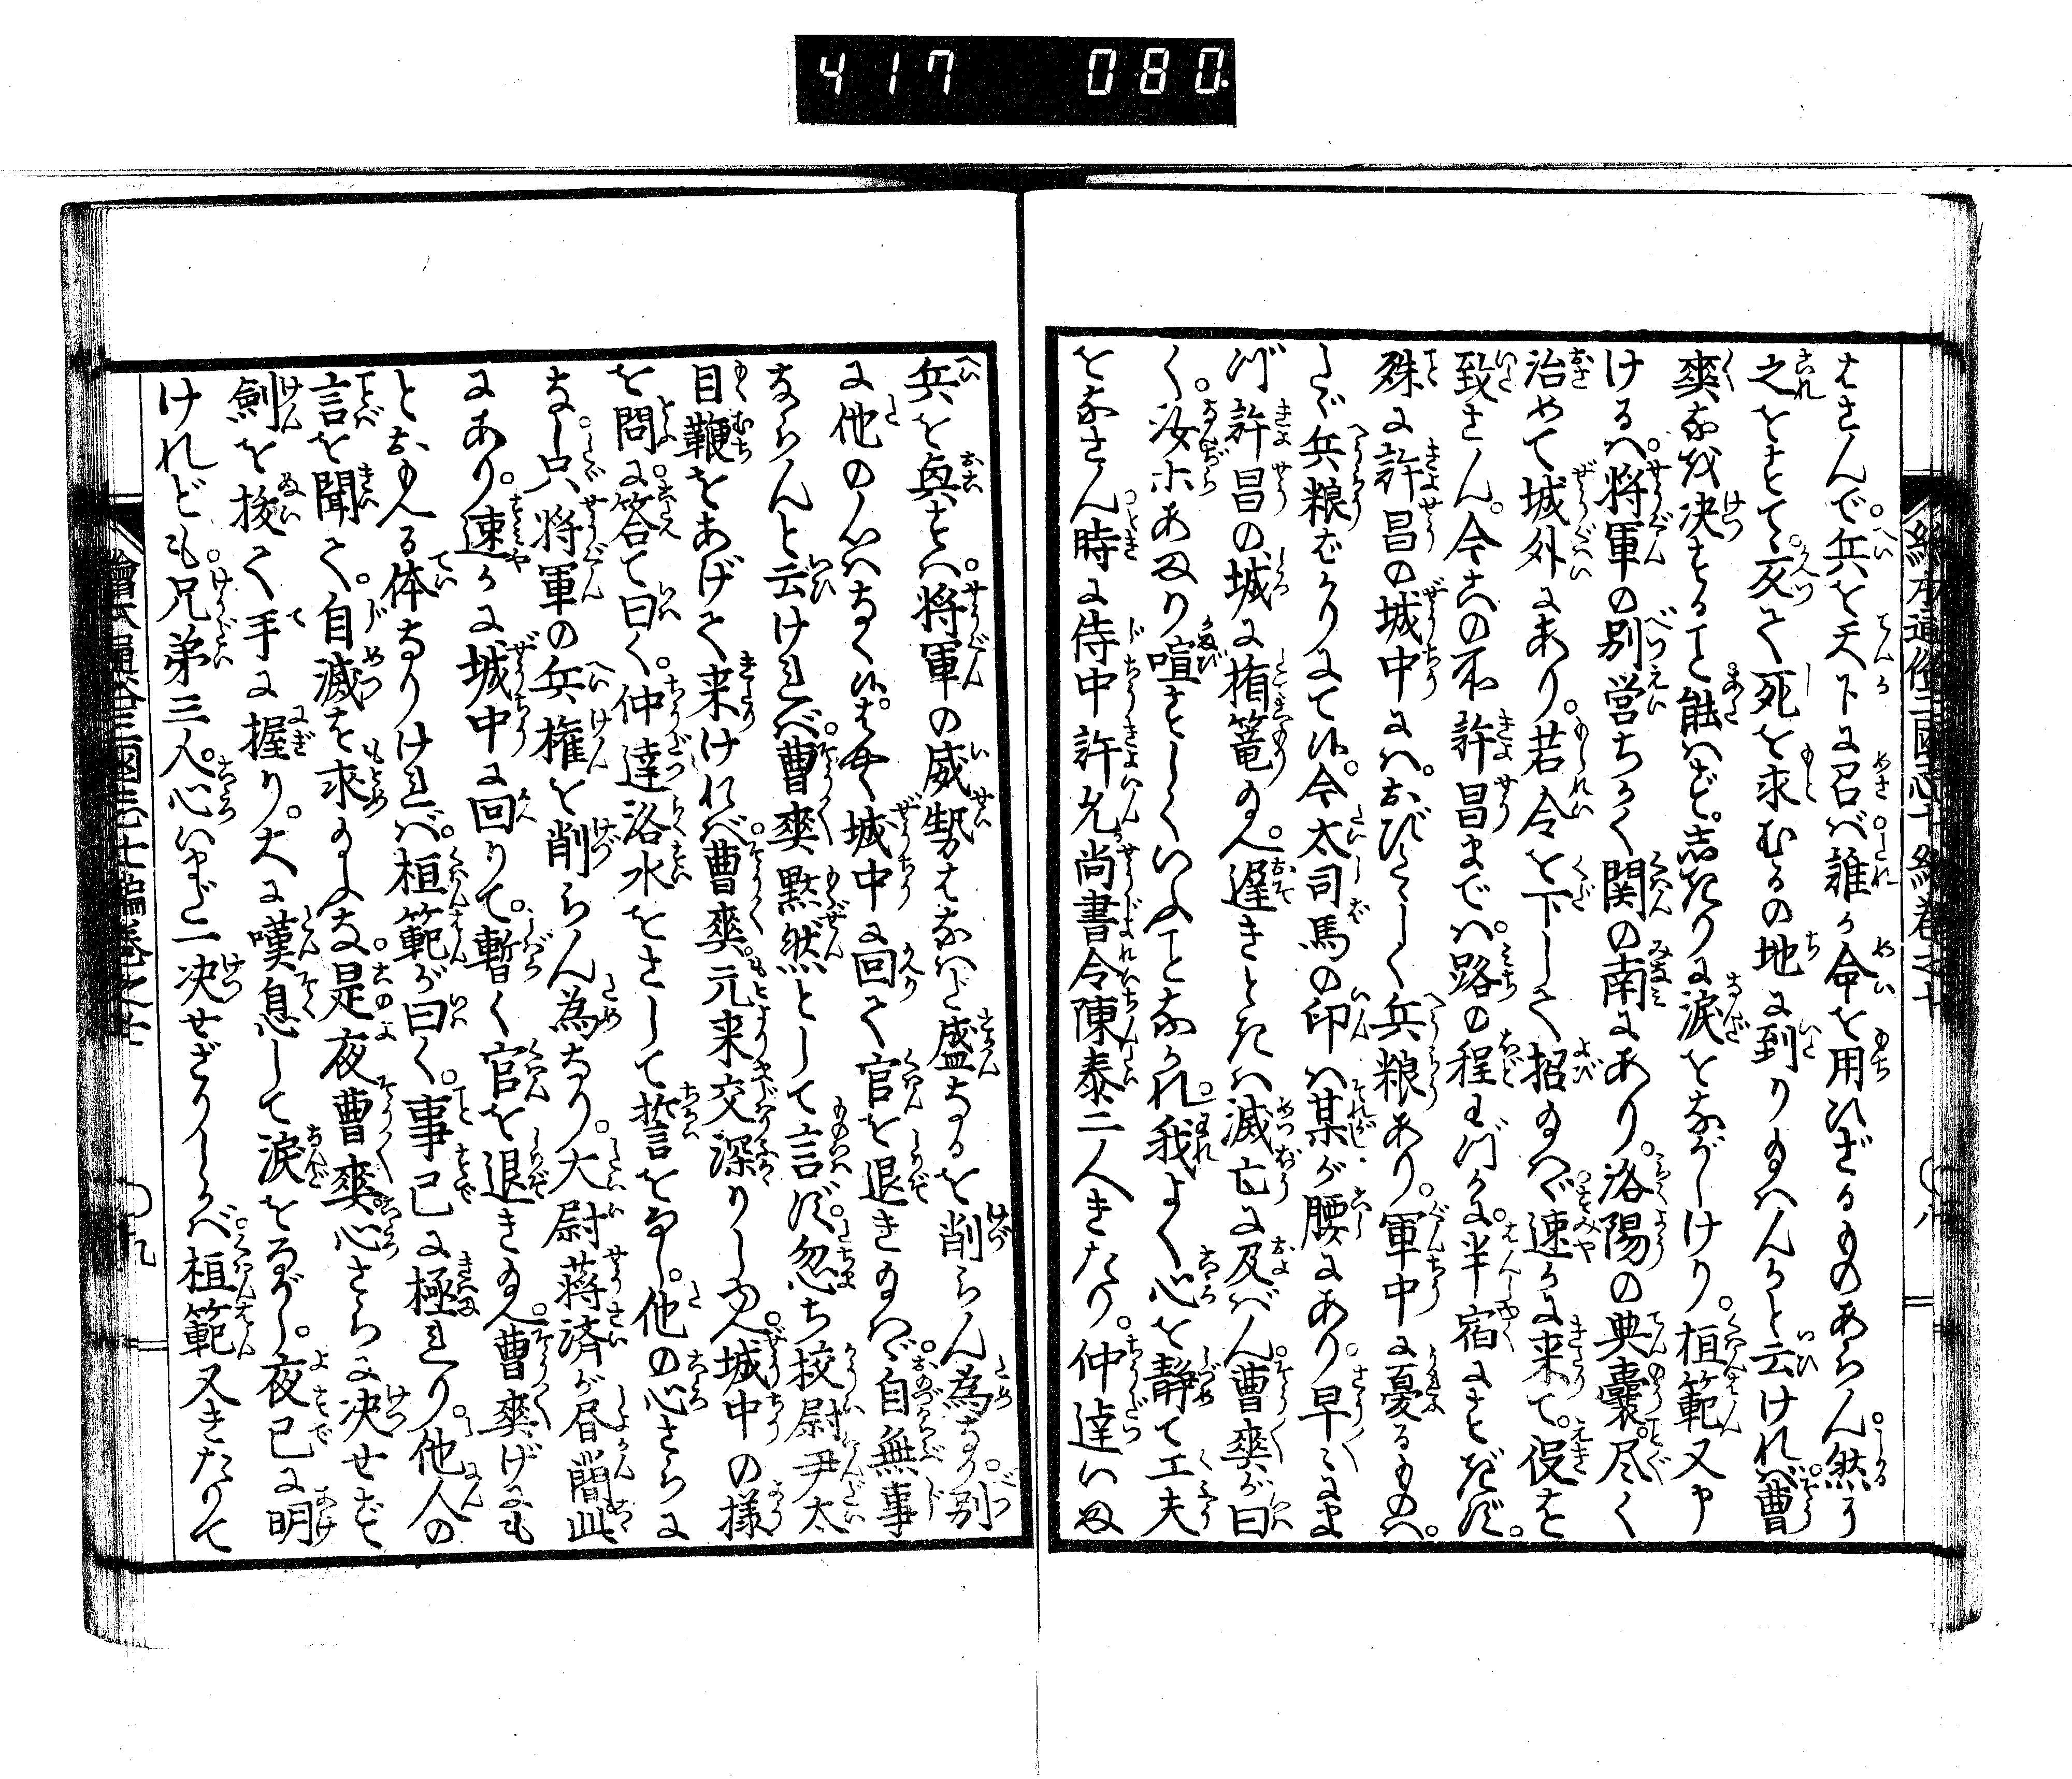 417 080.
まさんで。兵を天下に召ば誰か命を用ひざるものあらん。然るう
之をすてゝ。反て死を求むるの地に到り給はんかと云ければ。曹
爽なほ决すること能はず。志きりに涙をながしけり。桓範又申
けるハ。将軍の別営ちかく関の南にあり。洛陽の典農。尽く
治めて城外にあり。若令を下して招給はゞ速かに来て。役を
致さん。今この所許昌までハ。路の程わづかに半宿にすぎず。
殊に許昌の城中にハ。おびたゝしく兵粮あり。軍中に憂るものハ。
たゞ兵粮ばかりにて候。今太司馬の印ハ某が腰にあり。早々にま
づ許昌の城に楯篭給へ。遅きときハ滅亡に及べん。曹爽が曰
く。汝ホあまり喧すしくいふことなかれ。我よく心を静て工夫
をなさん。時に侍中許允尚書令陳泰二人きたり。仲達ハ
兵を與すハ。将軍の威勢はなはだ盛なるを削らん為なり。別
に他の心ハなく候。はやく城中に回て官を退き給はゞ。自無事
ならんと云ければ。曹爽黙然として言ず。忽ち校尉尹太
目鞭をあげて来ければ。曹爽。元来交深りしゆへ。城中の様
を問に。答て曰く。仲達洛水をさして誓をなし。他の心さらに
なし。只将軍の兵権を削らん為なり。大尉蒋済が昼簡此
にあり。速かに城中に回りて。暫く官を退き給へ。曹爽げにも
とおもへる体なりければ。桓範が曰く。事已に極れり。他人の
言を聞て。自滅を求給ふな。是夜曹爽。心さらに决せずして
劍を抜て手に握り。大に嘆息して涙をながし。夜已に明
けれども。兄弟三人。心いまだ一决せざりしかば。桓範又きたりて
繪本通俗三國志七編巻之十
八
九